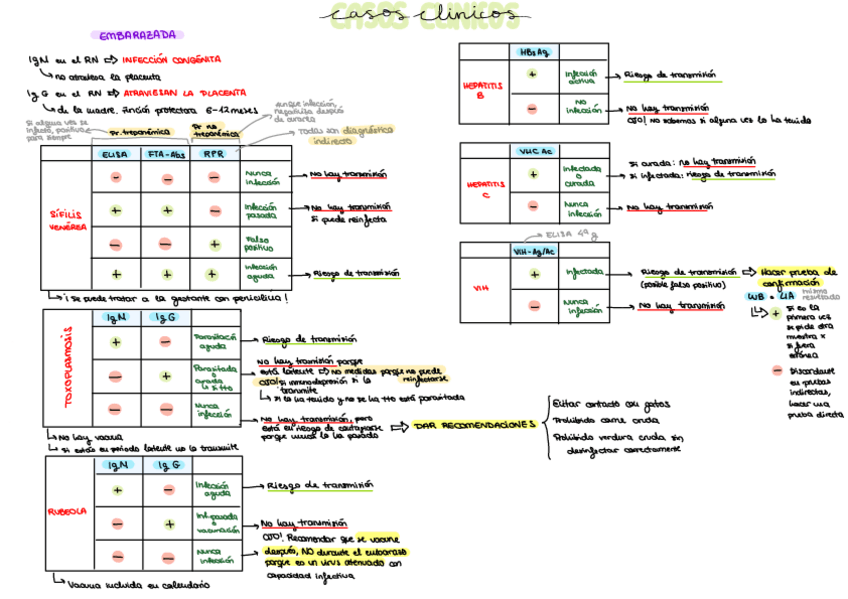 CASOS CLINICOS
EMBARAZADA
IgM en el RN ⇨ INFECCIÓN CONGÉNITA
↳ no atraviesa la placenta
Ig G en el RN ⇨ ATRAVIESAN LA PLACENTA
↳ de la madre. Función protectora 6-12 meses
Si alguna vez se infectó, positiva para siempre
Pr. treponémica
Pr no treponémica
aunque infección, negativiza después de curarla
Todas son diagnóstico indirecto
ELISA FTA-Abs RPR
SÍFILIS VENÉREA
- - - Nunca infección → No hay transmisión
+ + - Infección pasada → No hay transmisión
Si puede reinfecta
- - + Falso positivo
+ + + Infección aguda → Riesgo de transmisión
↳ ¡Se puede tratar a la gestante con penicilina!
TOXOPLASMOSIS
IgM Ig G
+ - Parasitación aguda → Riesgo de transmisión
- + Parasitada o curada si tto → No hay transmisión porque
está latente → No medidas porque no puede reinfectarse
OJO! si inmunodepresión si la transmite
↳ si la ha tenido y no se ha tto está parasitada
- - Nunca infección → No hay transmisión, pero
está en riesgo de contagiarse
porque nunca la ha pasado
⇨ DAR RECOMENDACIONES
Evitar contacto con gatos
Prohibido carne cruda
Prohibido verdura cruda sin
desinfectar correctamente
↳ No hay vacuna
↳ Si estás en periodo latente no la transmite
RUBEOLA
IgM Ig G
+ - Infección aguda → Riesgo de transmisión
- + Inf. pasada o vacunación → No hay transmisión
- - Nunca infección → OJO! Recomendar que se vacune
después, NO durante el embarazo
porque es un virus atenuado con
capacidad infectiva
↳ Vacuna incluida en calendario
HBsAg
HEPATITIS B
+ Infección activa → Riesgo de transmisión
- No infección → No hay transmisión
OJO! No sabemos si alguna vez lo ha tenido
VHC Ac
HEPATITIS C
+ Infectada o curada → Si curada: no hay transmisión
Si infectada: riesgo de transmisión
- Nunca infección → No hay transmisión
ELISA 4ª g
VIH-Ag/Ac
VIH
+ Infectada → Riesgo de transmisión ⇨ Hacer prueba de confirmación
(posible falso positivo)
- Nunca infección → No hay transmisión
WB o LIA
mismo resultado
+ Si es la
primera vez
se pide otra
muestra x
si fuera
errónea
- Discordante
en pruebas
indirectas,
hacer una
prueba directa